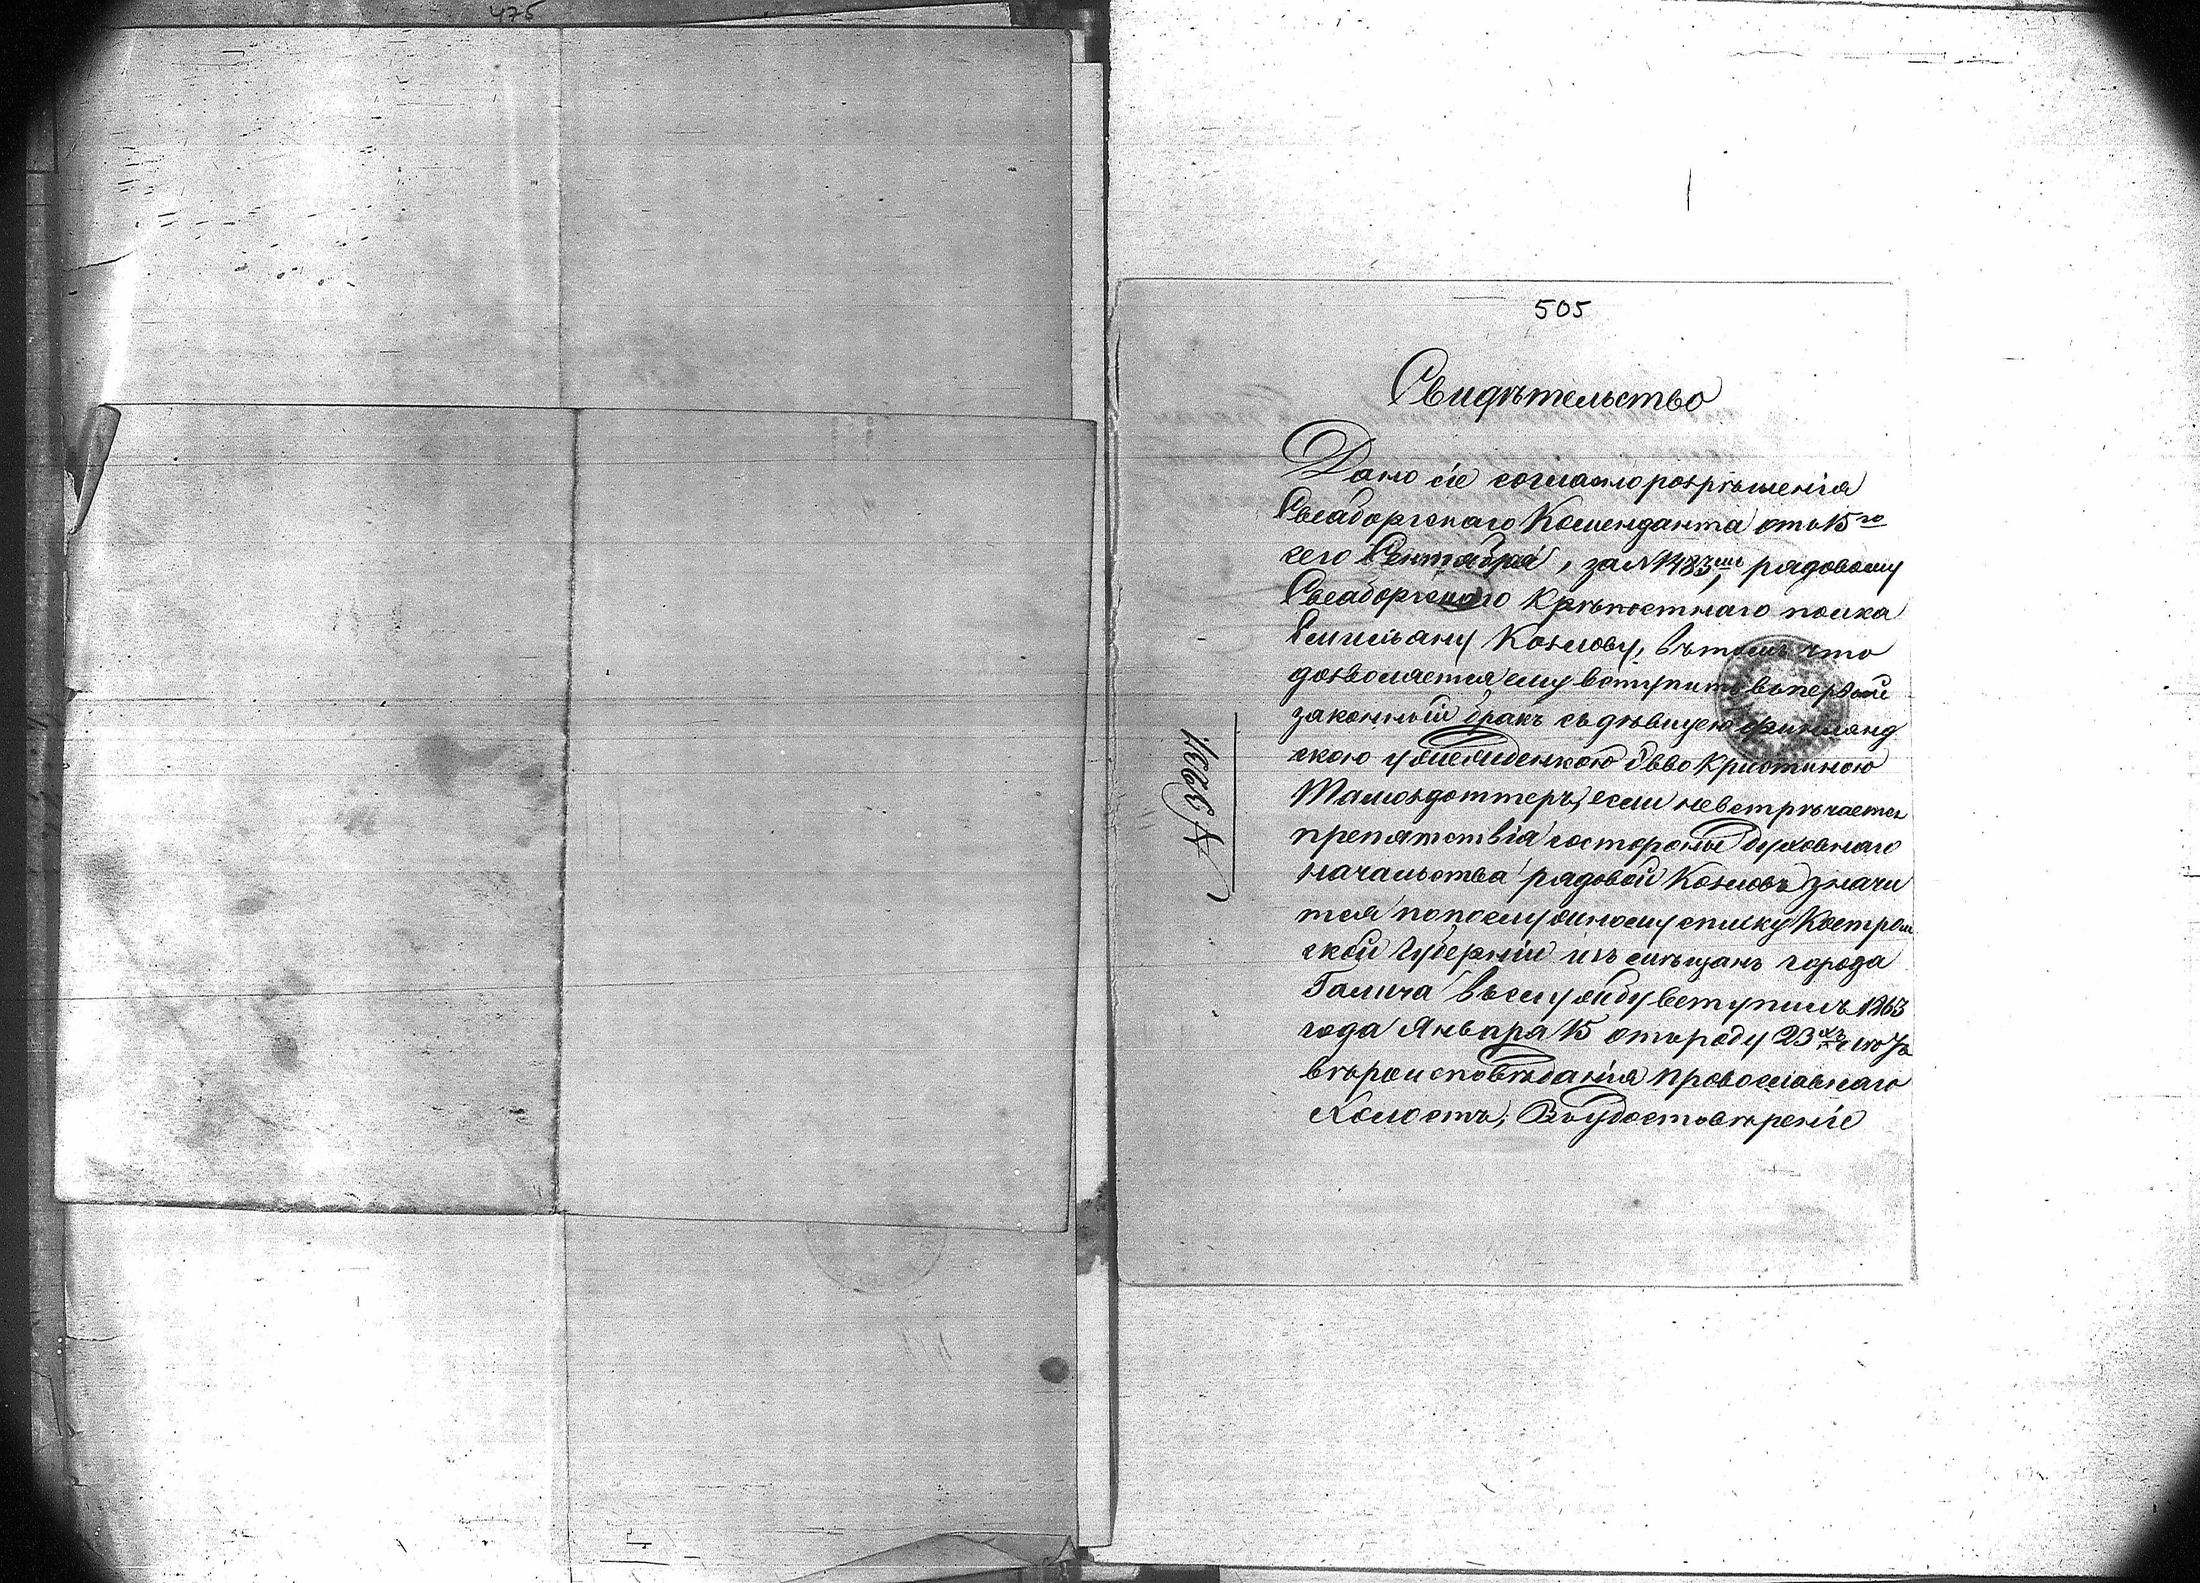 475
505
Свидѣтельство
Дано сіе согласно розрѣшенія
Свеаборгскаго Коменданта отъ 15го
сего Сентября, за № 1483мъ, рядовому
Свеаборгскаго Крѣпостнаго полка
Емильяну Козлову, въ томъ что
дозволяется ему вступить въ первый
законный бракъ съ дѣвицею финлянд
скою уроженкою Евво Кристиною
если не встрѣчается
препятствія со стороны Духовнаго
начальства рядовой Козловъ значи
тся по послужному списку Костром
ской Губерніи изъ мѣщанъ города
Галича въ службу вступилъ 1863
года Января 15 отъ роду 23
вѣроисповѣданія провославнаго
холостъ, Въ Удостовѣреніе